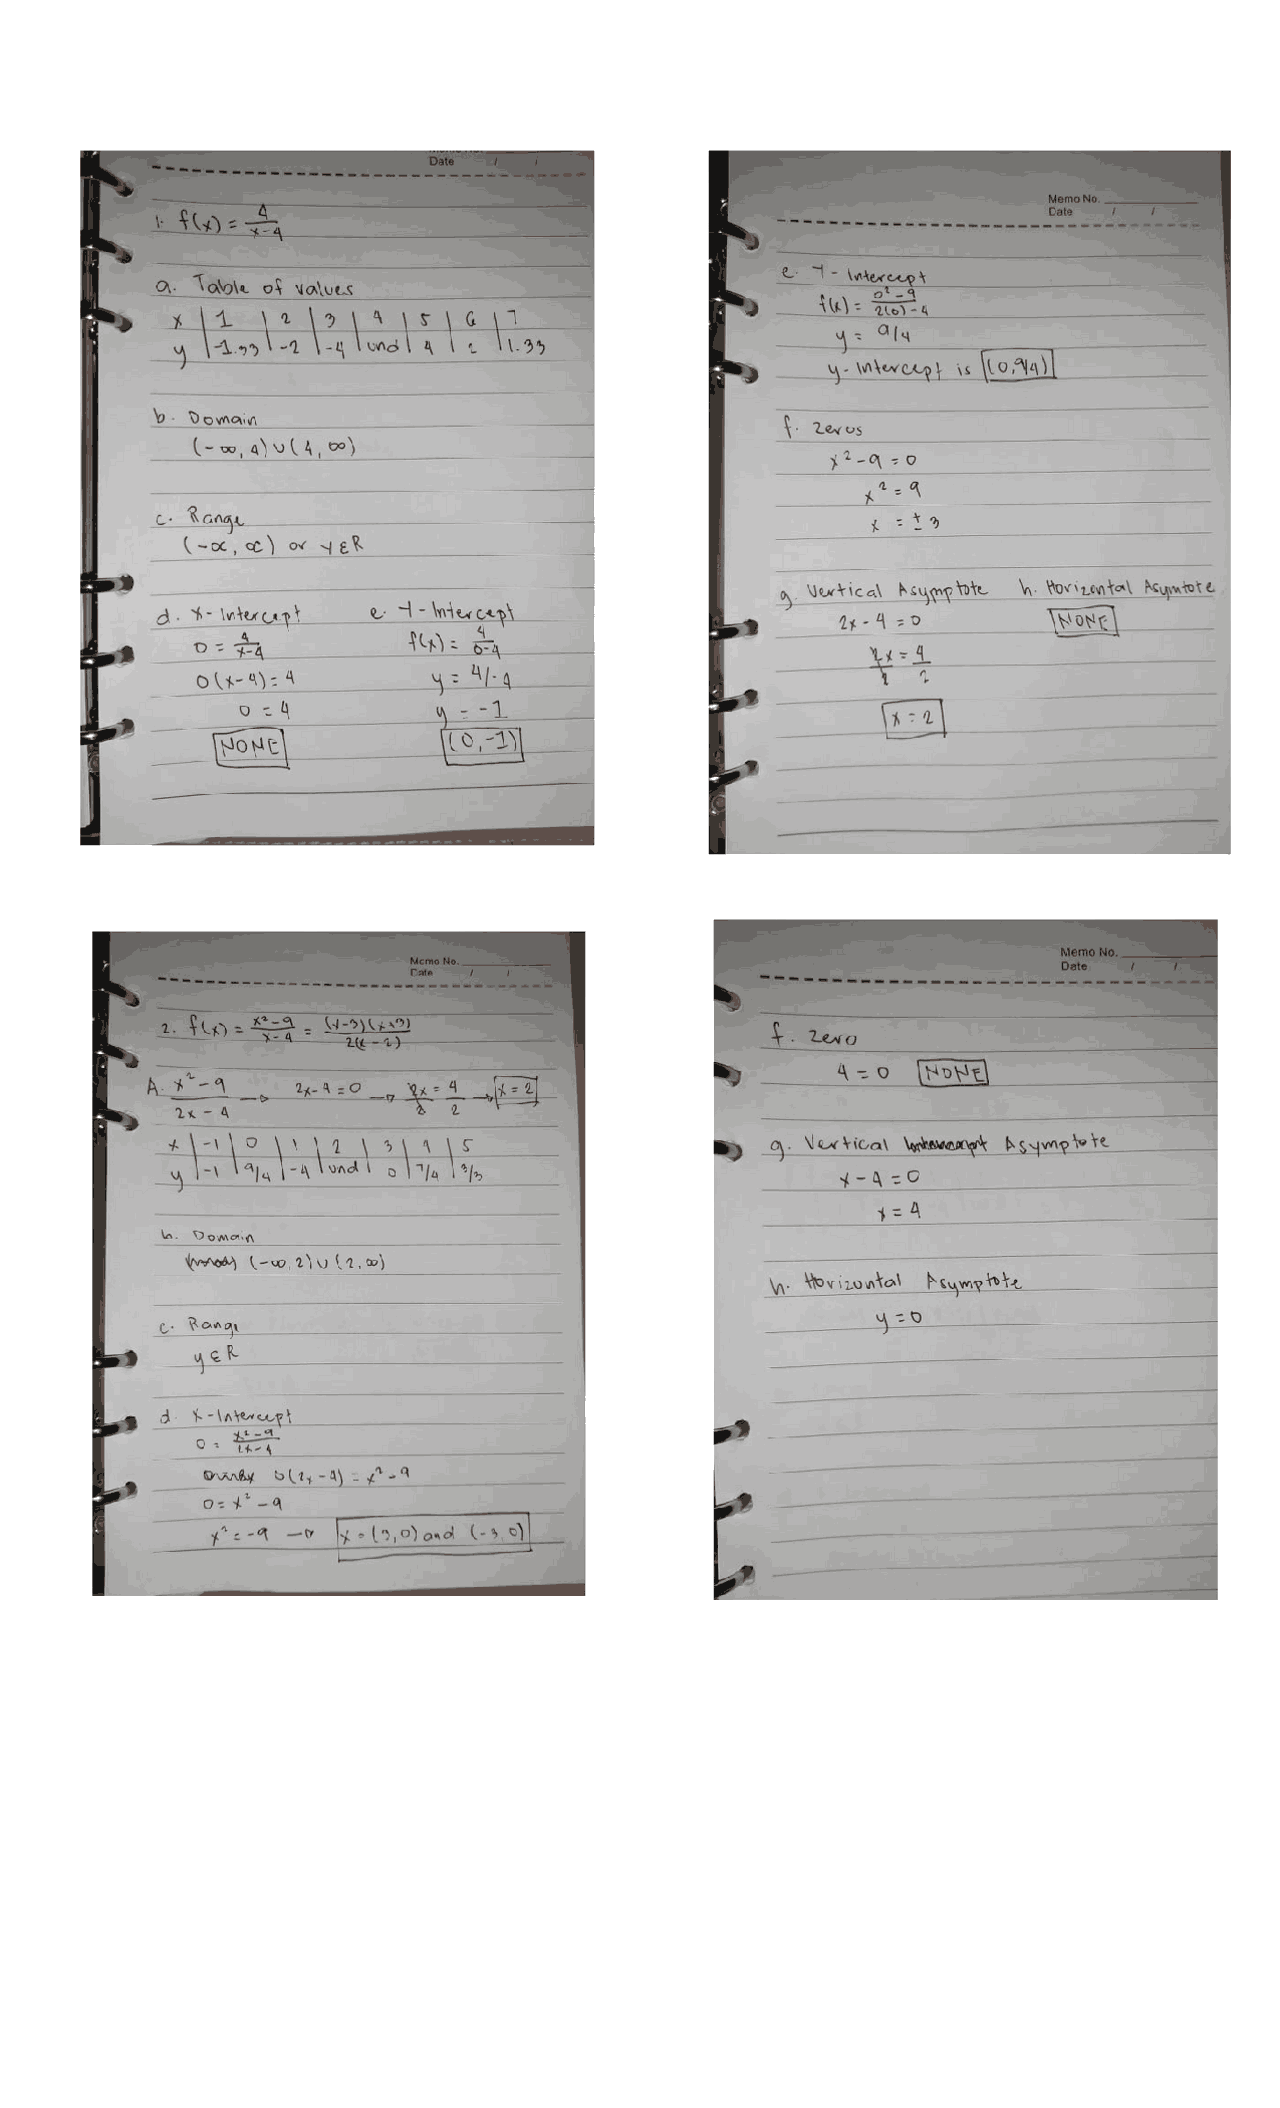 Date / /
1. f(x) = 4/x-4
a. Table of values
x | 1 | 2 | 3 | 4 | 5 | 6 | 7
y | -1.33 | -2 | -4 | und | 4 | 2 | 1.33
b. Domain
(-∞, 4) ∪ (4, ∞)
c. Range
(-∞, ∞) or y ε R
d. x-Intercept
0 = 4/x-4
0(x-4) = 4
0 = 4
NONE
e. Y-Intercept
f(x) = 4/0-4
y = 4/-4
y = -1
(0,-1)
Memo No.
Date / /
e. Y-Intercept
f(x) = 0²-9/2(0)-4
y = 9/4
y-Intercept is (0,9/4)
f. zeros
x²-9=0
x² = 9
x = ±3
g. Vertical Asymptote
2x-4=0
2x/2 = 4/2
x=2
h. Horizontal Asymtote
NONE
Memo No.
Date / /
2. f(x) = x²-9/x-4 = (x-3)(x+3)/2(x-2)
A. x²-9/2x-4 → 2x-4=0 → 2x/2 = 4/2 → x=2
x | -1 | 0 | 1 | 2 | 3 | 4 | 5
y | -1 | 9/4 | -4 | und | 0 | 7/4 | /3
b. Domain
(-∞, 2) ∪ (2, ∞)
c. Range
y ε R
d. x-Intercept
0 = x²-9/2x-4
0(2x-4) = x²-9
0 = x²-9
x² = -9 → x = (3,0) and (-3,0)
Memo No.
Date / /
f. zero
4 = 0 NONE
g. Vertical Asymptote
x-4=0
x=4
h. Horizontal Asymptote
y=0